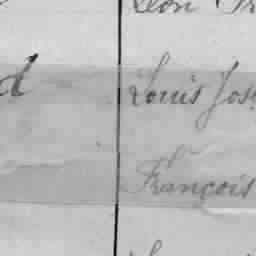 Léon
d
Louis Jos
François